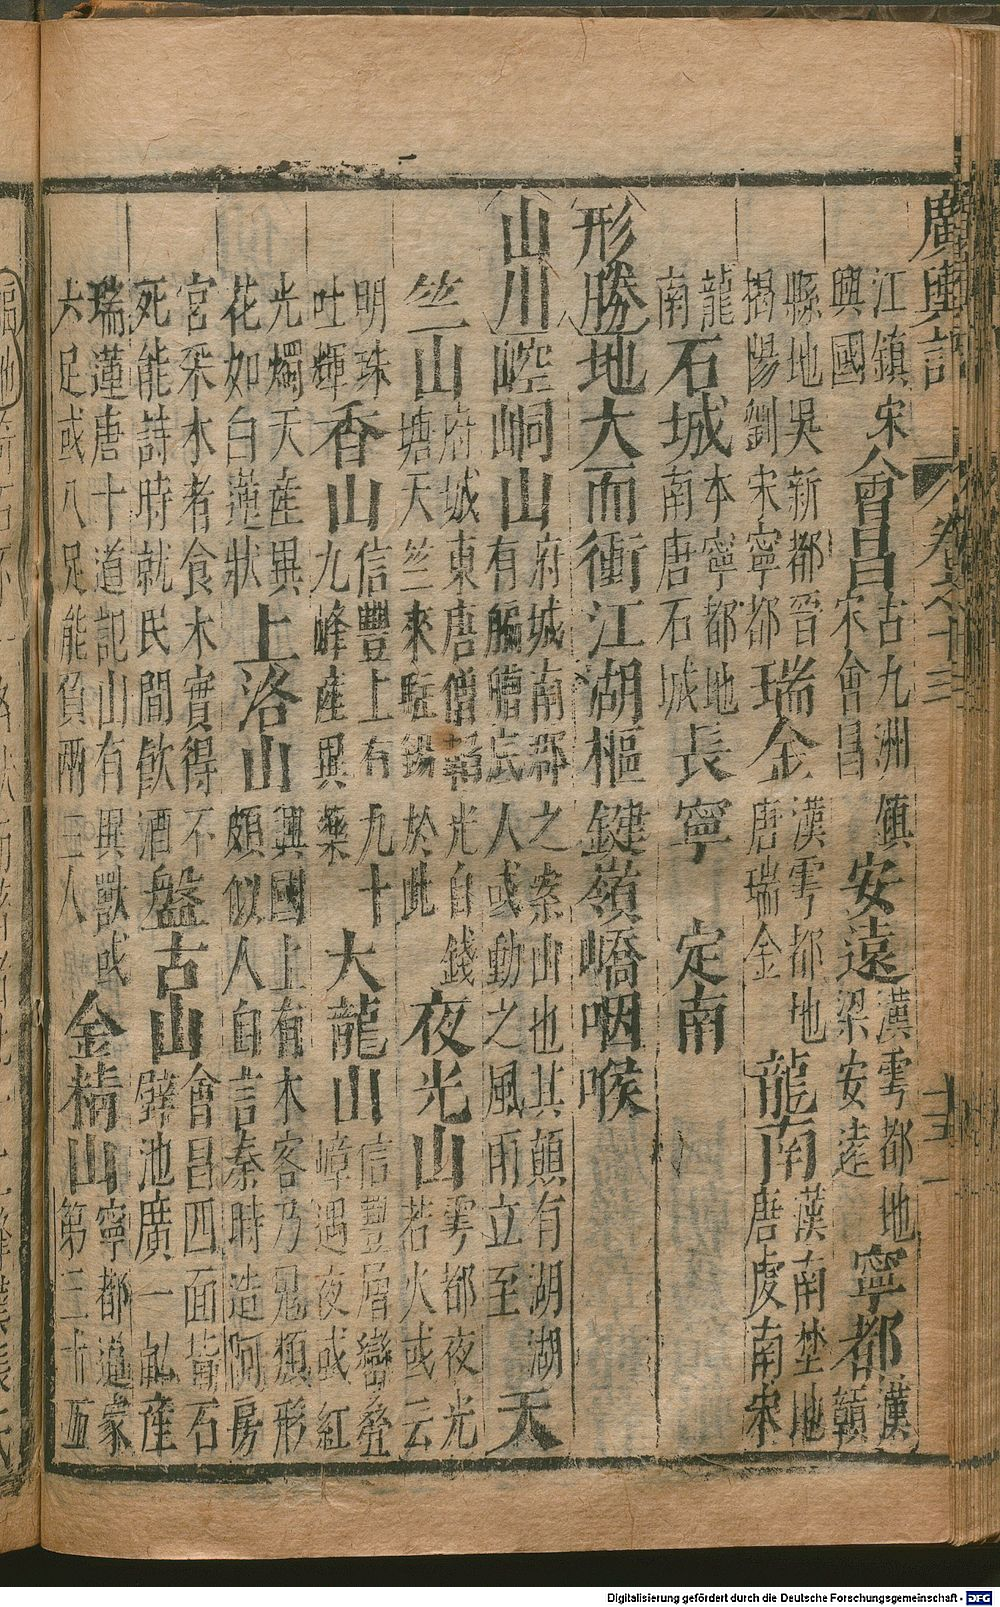 廣輿記 卷之十三 十五
江鎮宋興國會昌古九洲鎮宋會昌安遠漢雩都地梁安遠寧都漢贛
縣地吳新都晉揭陽劉宋寧都瑞金漢雩都地唐瑞金龍南漢南埜地唐虔南宋
龍南石城本寧都地南唐石城長寧 定南
形勝地大而衝江湖樞鍵嶺嶠咽喉
山川崆峒山府城南郡之案山也其顛有湖湖有民人或動之風雨立至天
竺山府城東唐僧韜光自錢塘天竺來駐錫於此夜光山雩都夜光若火或云
明珠吐輝香山信豐上有九十九峰產異藥大龍山信豐層巒疊嶂遇夜或紅
光燭天產異花如白蓮狀上洛山興國上有木客乃鬼類形頗似人自言秦時造阿房
宮采木者食木實得不死能詩時就民間飲酒盤古山會昌四面皆石劈池廣一畝產
瑞蓮唐十道記山有異獸或六足或八足能負兩三人金精山寧都道家第三十五
福地
Digitalisierung gefördert durch die Deutsche Forschungsgemeinschaft - DFG